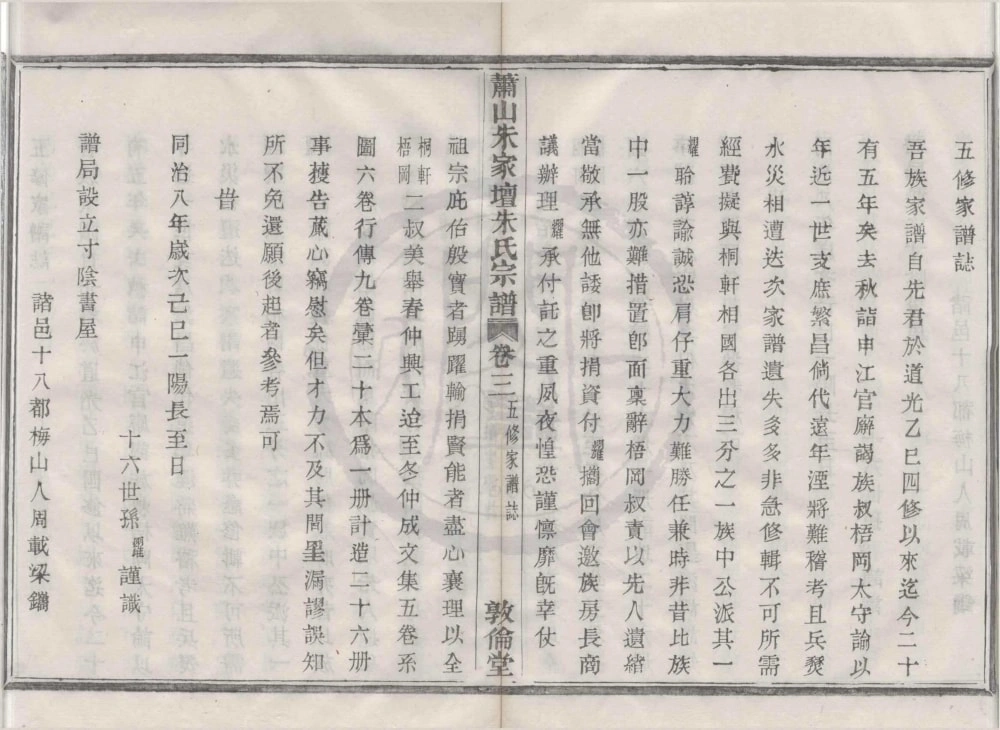 五修家譜誌
吾族家譜自先君於道光乙巳四修以來迄今二十
有五年矣去秋詣申江官廨謁族叔梧岡太守諭以
年近一世支庶繁昌倘代遠年湮將難稽考且兵燹
水災相遭迭次家譜遺失多多非急修輯不可所需
經費擬與桐軒相國各出三分之一族中公派其一
耀聆諄諭誠恐肩仔重大力難勝任兼時非昔比族
中一股亦難措置卽面稟辭梧岡叔責以先人遺緒
當敬承無他諉卽將捐資付耀攜回會邀族房長商
議辦理耀承付託之重夙夜惶恐謹懍靡旣幸仗
蕭山朱家壇朱氏宗譜 卷三 五修家譜誌 一 敦倫堂
祖宗庇佑殷實者踴躍輸捐賢能者盡心襄理以全
桐軒梧岡二叔美舉春仲興工迨至冬仲成文集五卷系
圖六卷行傳九卷彙二十本爲一册計造二十六册
事獲告蕆心竊慰矣但才力不及其間罣漏謬誤知
所不免還願後起者參考焉可
旹
同治八年歲次己巳一陽長至日
十六世孫耀謹識
譜局設立寸陰書屋
諸邑十八都梅山人周載梁鐫